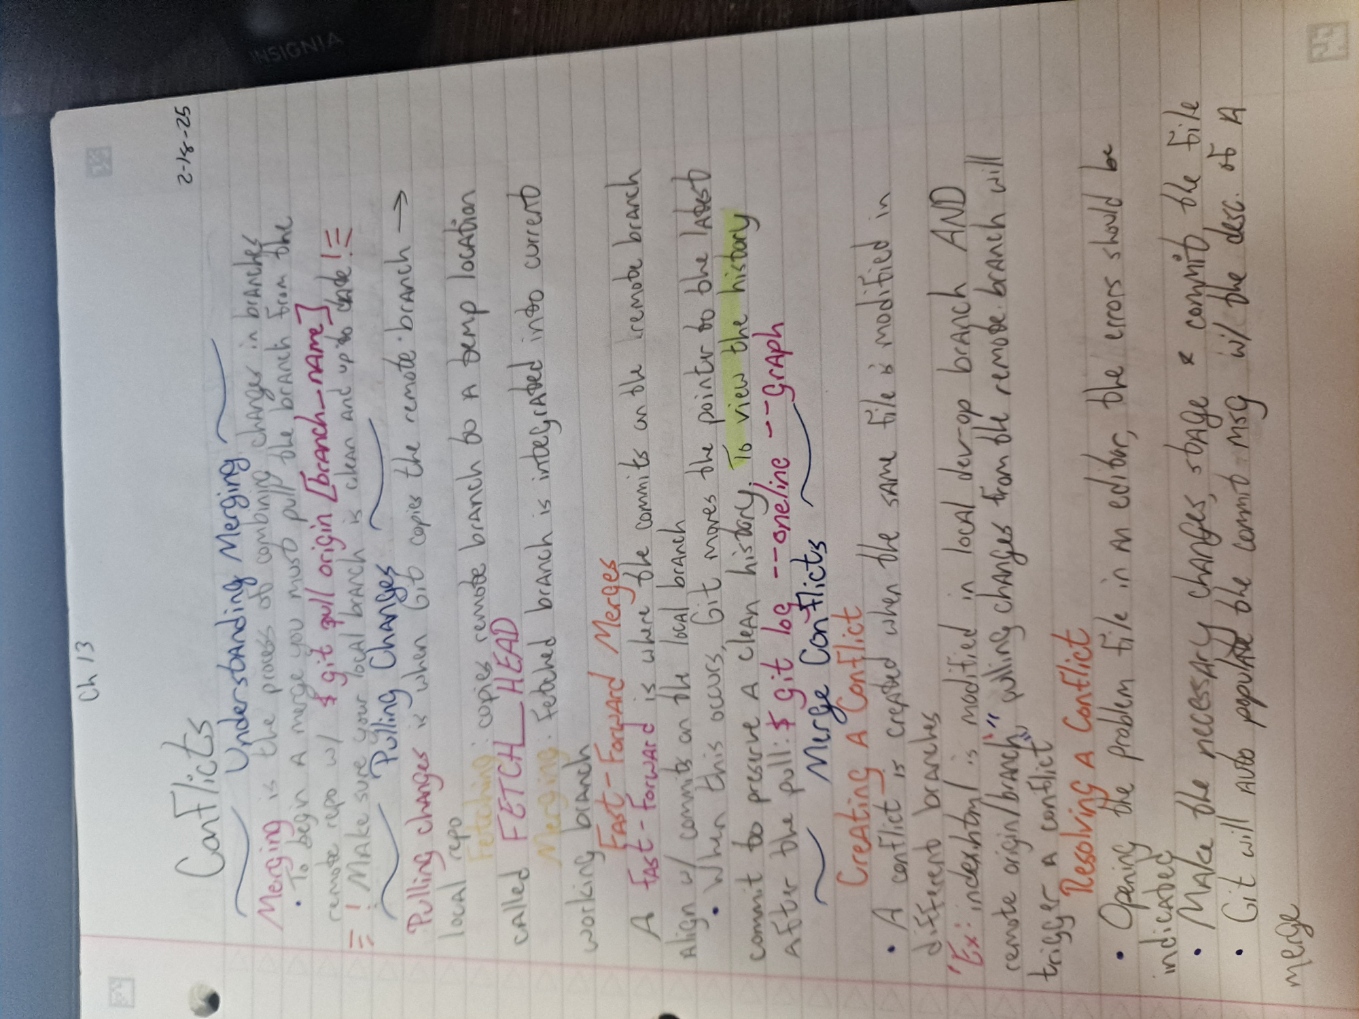 Ch 13
2-18-25
Conflicts
Understanding Merging
Merging is the process of combining changes in branches
• To begin a merge you must pull the branch from the
remote repo w/ $ git pull origin [branch_name]
! Make sure your local branch is clean and up to date !
Pulling Changes
Pulling changes is when Git copies the remote branch →
local repo
Fetching: copies remote branch to a temp location
called FETCH_HEAD
Merging: Fetched branch is integrated into current
working branch
Fast-Forward Merges
A fast-forward is where the commits on the remote branch
align w/ commits on the local branch
• When this occurs, Git moves the pointer to the latest
commit to preserve a clean history. To view the history
after the pull: $ git log --oneline --graph
Merge Conflicts
Creating a Conflict
• A conflict is created when the same file is modified in
different branches
"Ex: index.html is modified in local dev-op branch AND
remote origin/branch," pulling changes from the remote branch will
trigger a conflict"
Resolving a Conflict
• Opening the problem file in an editor, the errors should be
indicated
• Make the necessary changes, stage & commit the file
• Git will auto populate the commit msg w/ the desc. of a
merge
INSIGNIA